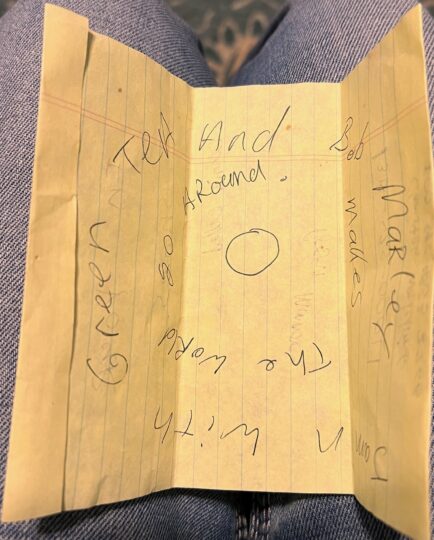 Jam n With
Green
Tea And Bob
Marley
makes
The World
go
Around.